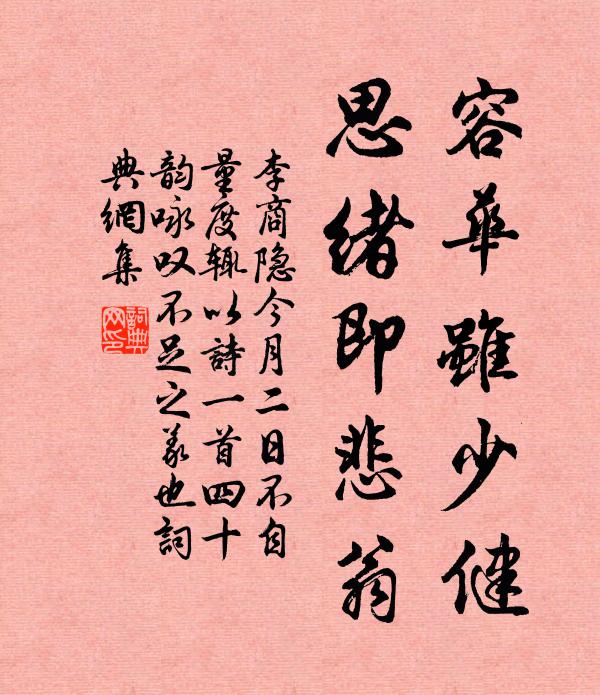 容華雖少健
思緒即悲翁
李商隐今月二日不自
量度辄以詩一首四十
韵咏叹不足之义也詞
典網集
詞典
网印